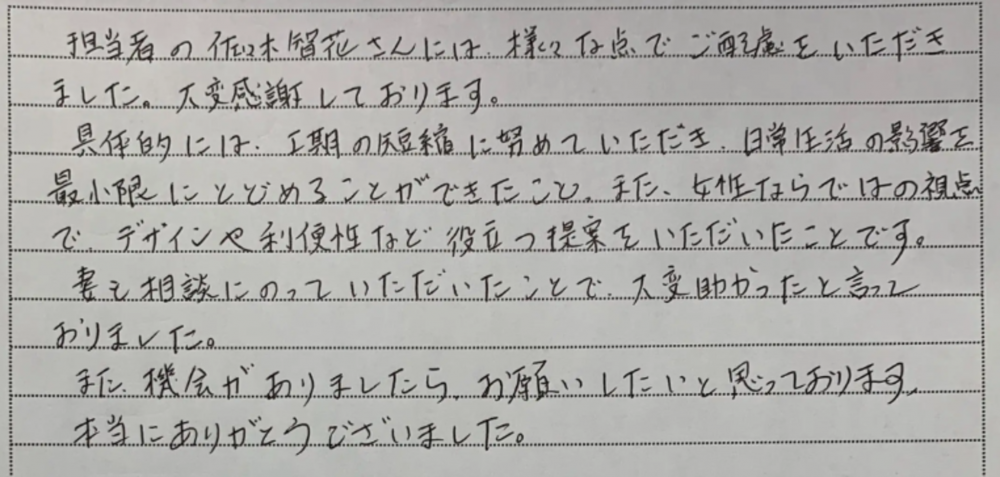 担当者の佐々木智花さんには、様々な点でご配慮をいただき
ました。大変感謝しております。
具体的には、工期の短縮に努めていただき、日常生活の影響を
最小限にとどめることができたこと。また、女性ならではの視点
で、デザインや利便性など役立つ提案をいただいたことです。
妻も相談にのっていただいたことで、大変助かったと言って
おりました。
また、機会がありましたら、お願いしたいと思っております。
本当にありがとうございました。